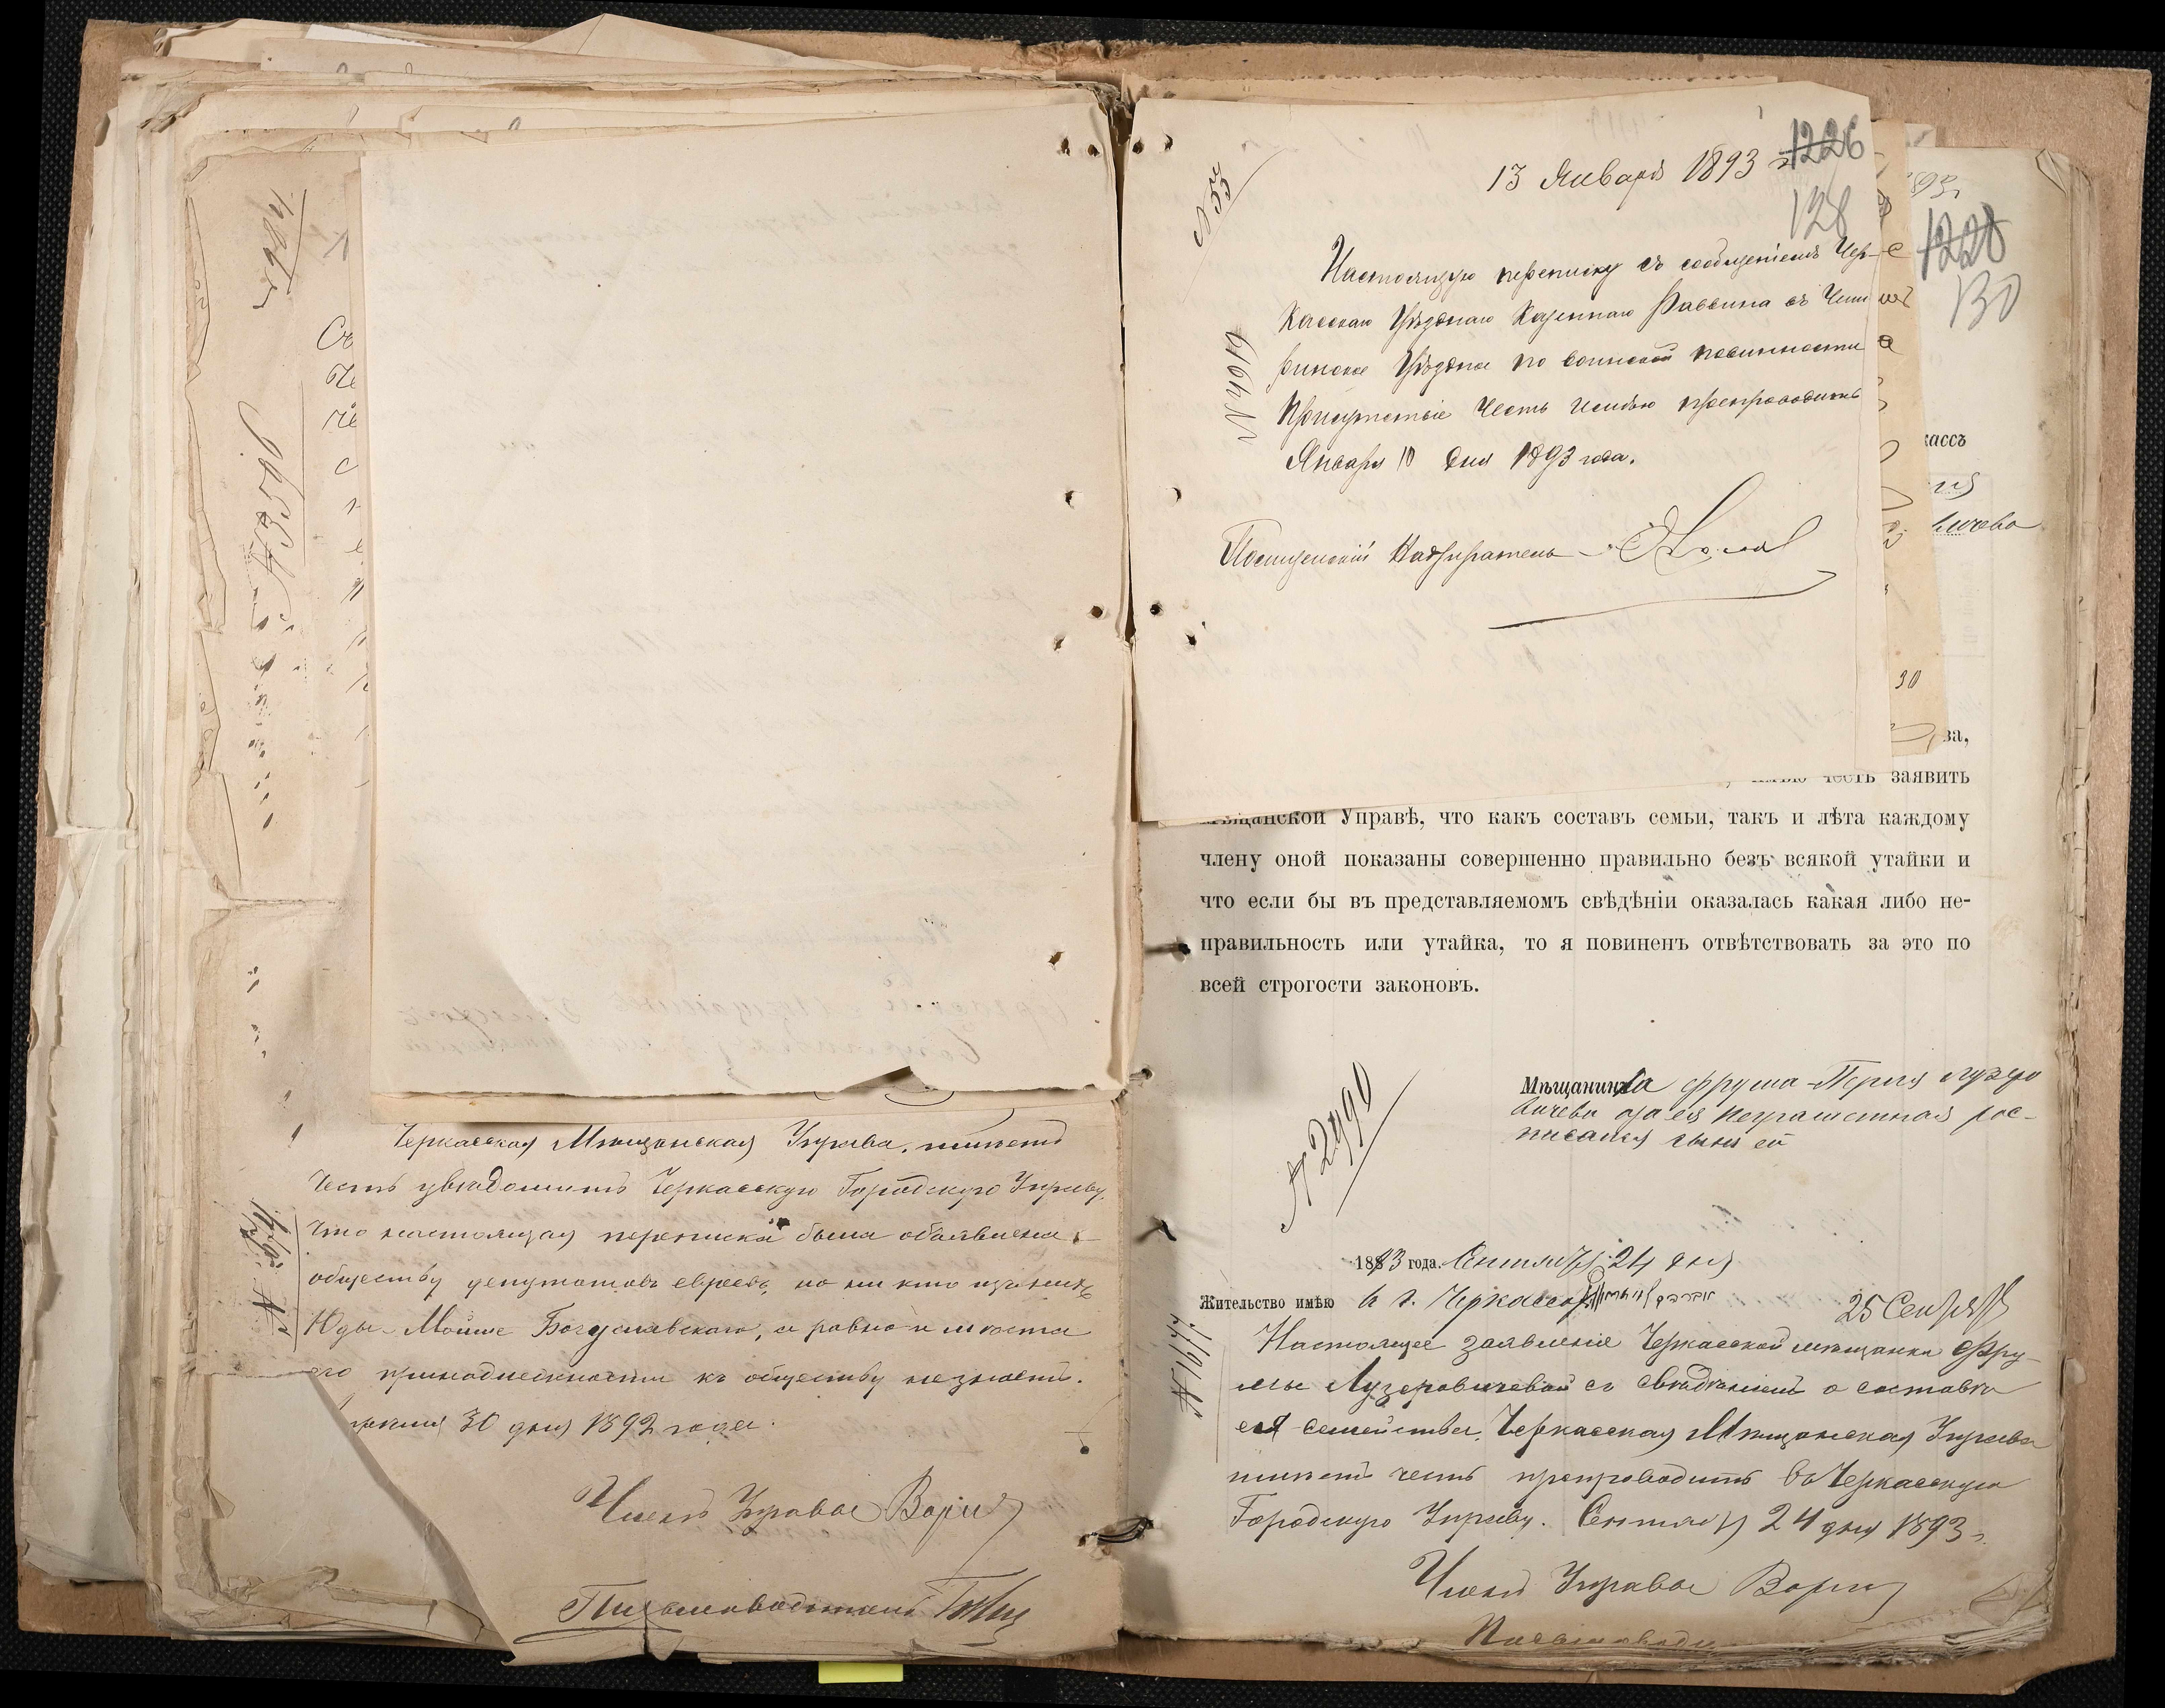 № 3596
Черкасская Мѣщанская Управа, имѣетъ
честь увѣдомить Черкасскую Городскую Управу,
что настоящая переписка была объявлена
обществу депутатовъ евреевъ, но ни кто изъ нихъ
Юды-Мойше Богуславскаго, а равно и мѣста
его принадлежности къ обществу незнаетъ.
30 дня 1892 года.
Членъ Управы
Письмоводитель
№ 55
13 Января 1893 г.
1226
128
Настоящую переписку съ сообщеніемъ Чер-
касскаго Уѣзднаго Казеннаго Раввина въ Чиги
ринское Уѣздное по воинской повинности
Присутствіе честь имѣю препроводить
Января 10 дня 1893 года.
№ 4919
Полицейскій Надзиратель
1228
130
кассъ
вичева
30
ва,
имѣю честь заявить
Мѣщанской Управѣ, что какъ составъ семьи, такъ и лѣта каждому
члену оной показаны совершенно правильно безъ всякой утайки и
что если бы въ представляемомъ свѣдѣніи оказалась какая либо не-
правильность или утайка, то я повиненъ отвѣтствовать за это по
всей строгости законовъ.
№ 2990
Мѣщанинъ ка Фрума-Перля Лузеро
вичева за ея неграмотная рос-
писался сынъ ей
1893 года. Сентября 24 дня
Жительство имѣю въ г. Черкассахъ
25 Сентября
№ 1677
Настоящее заявленіе Черкасской мѣщанки Фру-
мы Лузеровичевой съ свѣдѣніемъ о составѣ
ея семейства, Черкасская Мѣщанская Управа
имѣетъ честь препроводить въ Черкасскую
Городскую Управу. Сентября 24 дня 1893 г.
Членъ Управы
Письмоводи